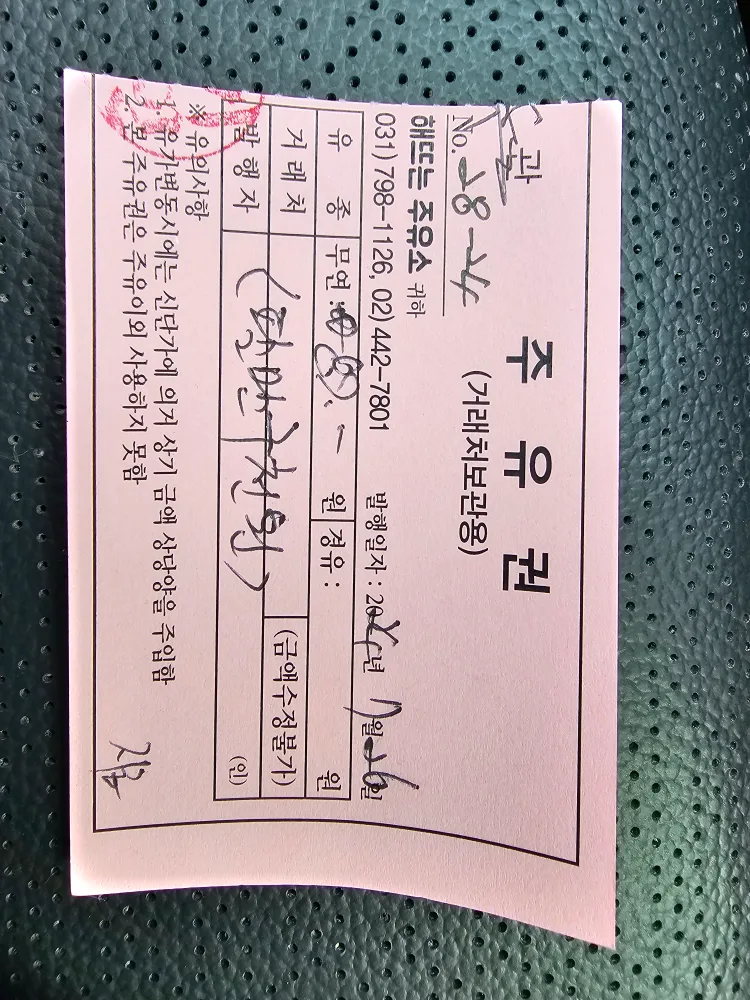 주 유 권
(거래처보관용)
No. 28-24
해뜨는 주유소 귀하
031) 798-1126, 02) 442-7801 발행일자 : 2024년 7월 26일
유 종 무연 : 원 경유 : 원
거 래 처 (금액수정불가)
발 행 자 (인)
※ 유의사항
1. 유가변동시에는 신단가에 의거 상기 금액 상당양을 주입함
2. 본주유권은 주유이외 사용하지 못함